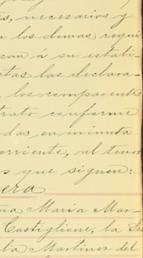 s, necesarios y
los demas, requi
con á su estabi-
stas las declara-
los comparecientes
trato conforme
das en minuta
orriente, al tenor
s que siguen:
era
na Maria Mar-
Castiglione, la S
la Martinez del